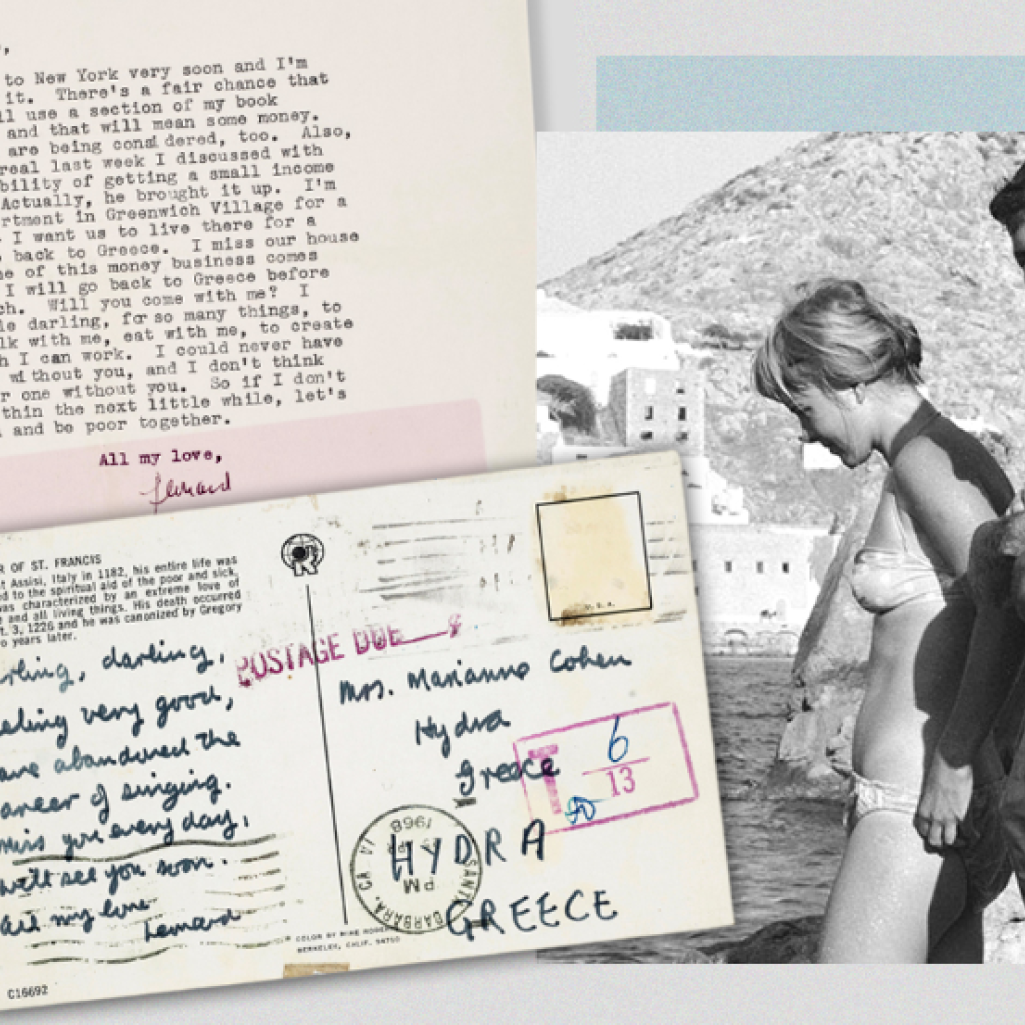 ,
to New York very soon and I'm
it. There's a fair chance that
ll use a section of my book
and that will mean some money.
are being considered, too. Also,
real last week I discussed with
bility of getting a small income
Actually, he brought it up. I'm
rtment in Greenwich Village for a
. I want us to live there for a
back to Greece. I miss our house
me of this money business comes
I will go back to Greece before
ch. Will you come with me? I
le darling, for so many things, to
lk with me, eat with me, to create
h I can work. I could never have
without you, and I don't think
r one without you. So if I don't
thin the next little while, let's
and be poor together.
All my love,
Leonard
R OF ST. FRANCIS
t Assisi, Italy in 1182, his entire life was
ed to the spiritual aid of the poor and sick,
was characterized by an extreme love of
e and all living things. His death occurred
t. 3, 1226 and he was canonized by Gregory
o years later.
rling, darling,
eeling very good,
ave abandoned the
career of singing.
miss you every day,
will see you soon.
All my love
Leonard
C16692
POSTAGE DUE
U.S.A.
Mrs. Marianne Cohen
Hydra
Greece
T 6
13
HYDRA
GREECE
SANTA BARBARA, CA
PM
1968
COLOR BY MIKE ROBERTS
BERKELEY, CALIF. 94710